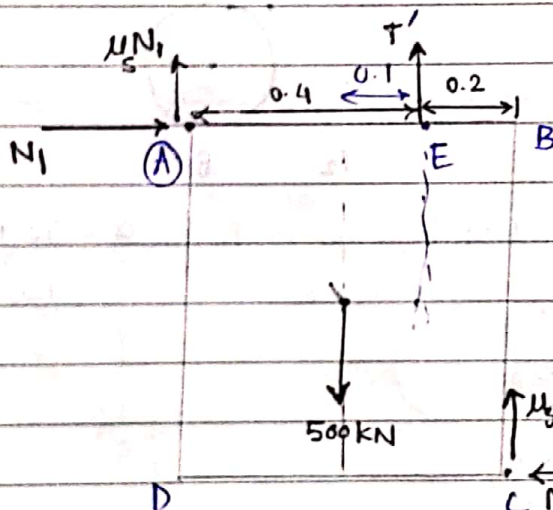 μsN₁
T'
0.4
0.1
0.2
N₁
A
E
B
500 kN
μs
D
C